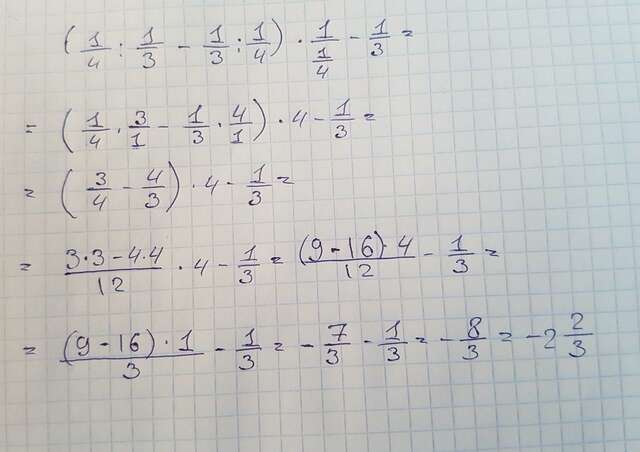 (1/4 : 1/3 - 1/3 : 1/4) · 1/(1/4) - 1/3 =
= (1/4 · 3/1 - 1/3 · 4/1) · 4 - 1/3 =
= (3/4 - 4/3) · 4 - 1/3 =
= (3·3-4·4)/12 · 4 - 1/3 = ((9-16)·4)/12 - 1/3 =
= ((9-16)·1)/3 - 1/3 = - 7/3 - 1/3 = - 8/3 = -2 2/3